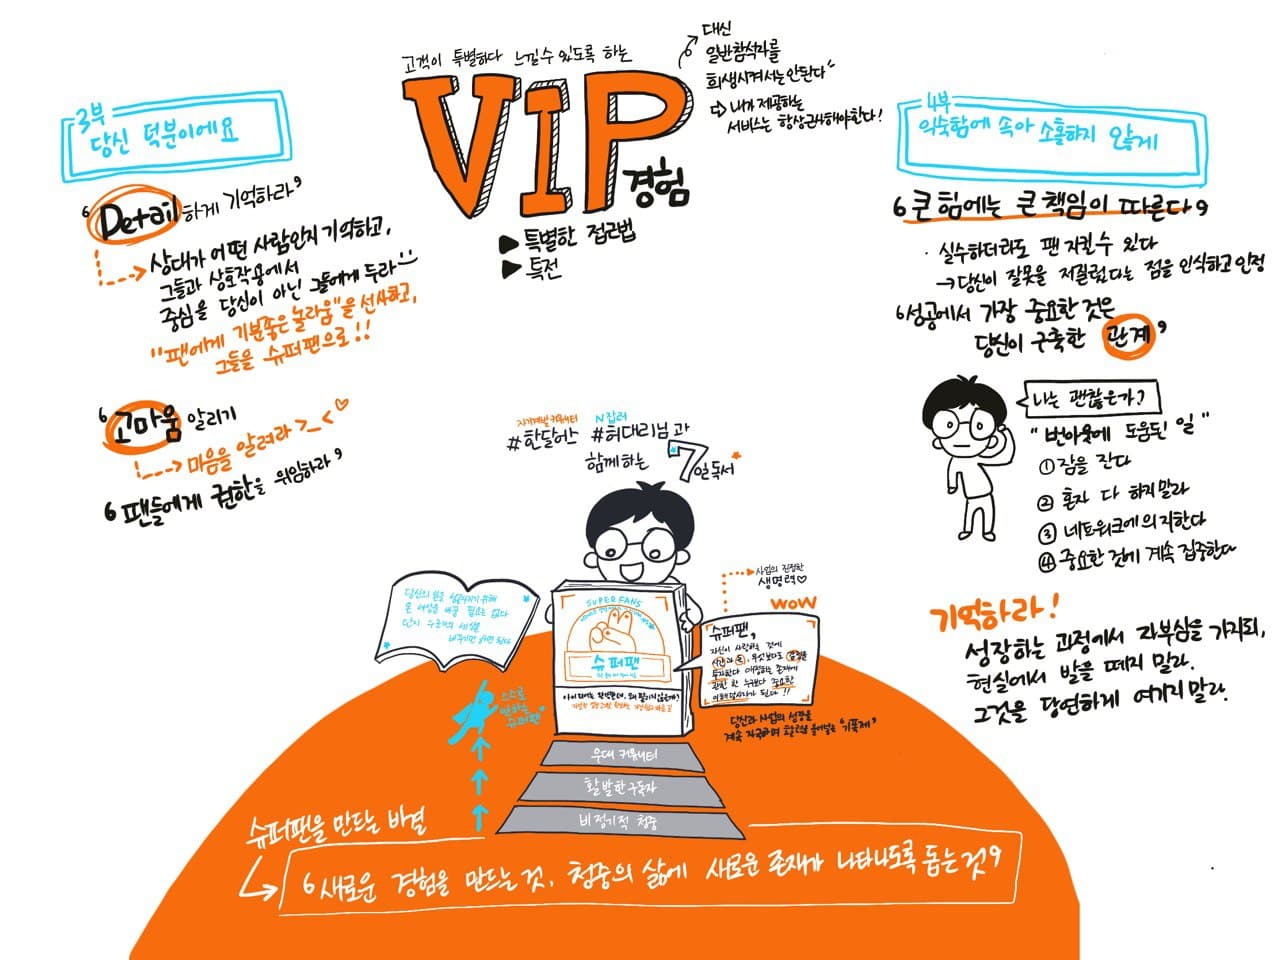 고객이 특별하다 느낄수 있도록 하는
VIP
경험
▶ 특별한 접근법
▶ 특전
대신
일반참석자를
희생시켜서는안된다"
⇨ 내가 제공하는
서비스는 항상근사해야한다!
3부
당신 덕분이에요
'Detail하게 기억하라'
상대가 어떤 사람인지 기억하고,
그들과 상호작용에서
중심을 당신이 아닌 그들에게 두라
"팬에게 기분좋은놀라움"을 선사하고,
그들을 슈퍼팬으로!!
'고마움 알리기
마음을 알려라 >_<♡
'팬들에게 권한을 위임하라'
4부
익숙함에 속아 소홀하지 않게
'큰 힘에는 큰 책임이 따른다'
· 실수하더라도 팬 지킬 수 있다
→ 당신이 잘못을 저질렀다는 점을 인식하고 인정
'성공에서 가장 중요한 것은
당신이 구축한 관계'
나는 괜찮은가?
"번아웃에 도움된 일"
① 잠을 잔다
② 혼자 다 하지말라
③ 네트워크에의지한다
④ 중요한 것에 계속 집중한다
기억하라!
성장하는 과정에서 자부심을 가지되,
현실에서 발을 떼지 말라.
그것을 당연하게 여기지말라.
자기계발 커뮤니티
N잡러
#한달어스 #허대리님과
함께하는 7일독서
당신의 원을 성장시키기위해
온 세상을 바꿀 필요는 없다
단지 누군가의 세상을
바꾸기만 하면 된다
SUPERFANS
슈퍼팬
사업의 진정한
생명력♡
WOW
슈퍼팬,
자신이 사랑하는 것에
시간과 돈, 무엇보다도 감정을
투자한다
관한 한 누구보다 중요한
이해당사자가 된다!!
당신과 사업의 성장을
계속 자극하며 활력을 불어넣는 '기폭제'
스스로
변하는
슈퍼팬
우대 커뮤니티
활발한구독자
비정기적 청중
슈퍼팬을 만드는 비결
'새로운 경험을 만드는 것, 청중의 삶에 새로운 존재가 나타나도록 돕는것'